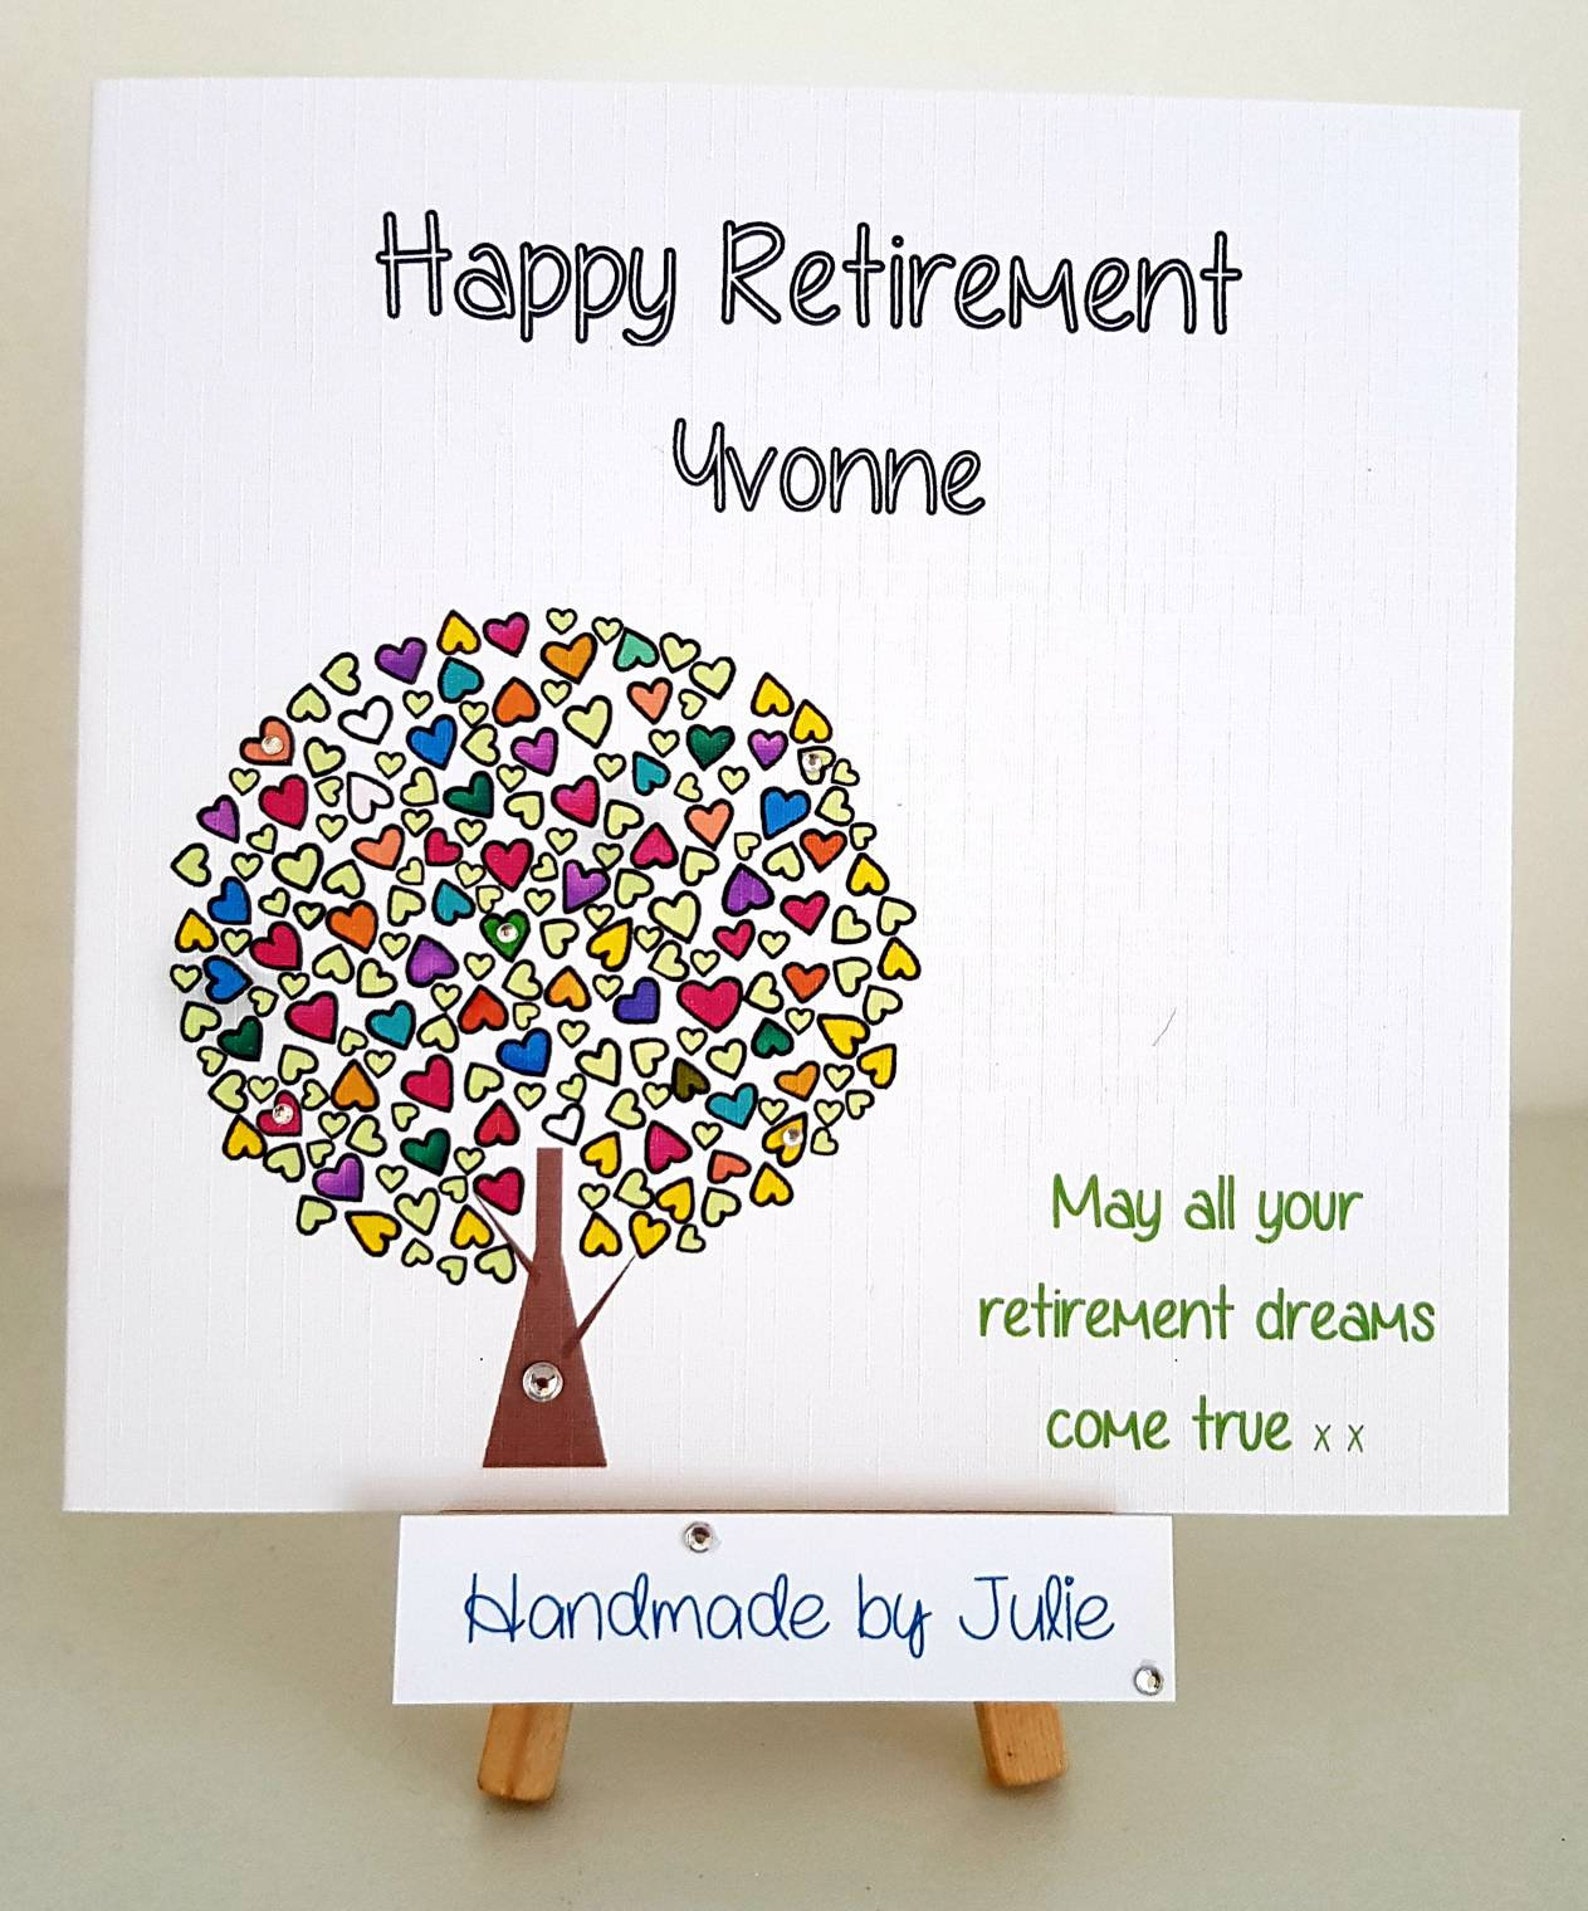 Happy Retirement
Yvonne
May all your
retirement dreams
come true x x
Handmade by Julie